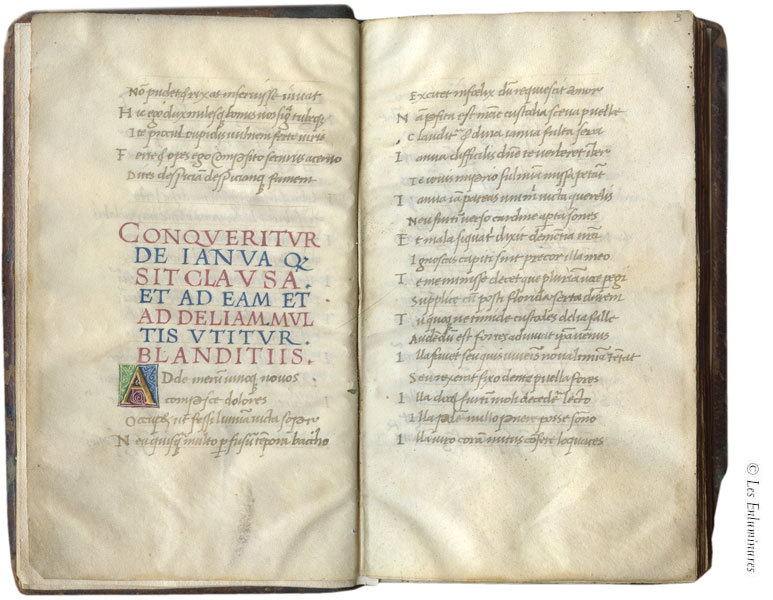 Nõ pudet et rixas inseruisse iuuat
Hic ego dux milesq; bonus uos signa tubeq;
Ite procul cupidis uulnera ferte uiris
Ferte et opes ego composito securus aceruo
Dites despiciam despiciamq; famem
CONQVERITVR
DE IANVA Q
SIT CLAVSA.
ET AD EAM ET
AD DELIAM.MVL
TIS VTITVR.
BLANDITIIS.
ADde merum uinoq; nouos
compesce dolores
Occupet ut fessi lumina uicta sopor
Neu quisq; multo pfusũ tempora baccho
3
Excitet infoelix dũ requiescit amor
Nã posita est nrãe custodia seua puelle
Clauditr̃ & dura ianua fulta sera
Ianua difficilis dñe te uerberet imber
Te iouis imperio fulmina missa petãt
Ianua iã pateas uni mĩ uicta querelis
Neu furtĩ uerso cardine aperta sones
Et mala siqua tibi dixit demẽtia nrã
Ignoscas capiti sint precor illa meo
Te meminisse decet que plurima uoce pegi
Supplice cũ posti florida serta darem
Tu quoq; ne timide custodes delia falle
Audẽdũ est fortes adiuuat ipa uenus
Illa fauet seu quis iuuenis noua limina tẽtat
Seu reserat fixo dente puella fores
Illa docet furtĩ molli decedere lecto
Illa pedẽ nullo ponere posse sono
Illa uiro corã nutus cõferre loquaces
© Les Enluminures